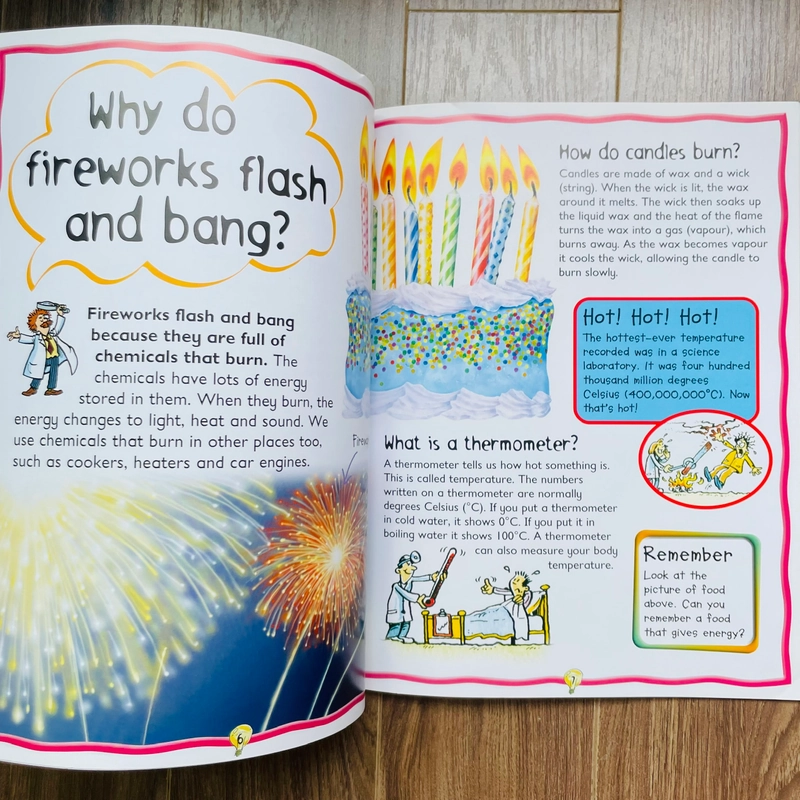 Why do
fireworks flash
and bang?
Fireworks flash and bang
because they are full of
chemicals that burn. The
chemicals have lots of energy
stored in them. When they burn, the
energy changes to light, heat and sound. We
use chemicals that burn in other places too,
such as cookers, heaters and car engines.
6
How do candles burn?
Candles are made of wax and a wick
(string). When the wick is lit, the wax
around it melts. The wick then soaks up
the liquid wax and the heat of the flame
turns the wax into a gas (vapour), which
burns away. As the wax becomes vapour
it cools the wick, allowing the candle to
burn slowly.
Hot! Hot! Hot!
The hottest-ever temperature
recorded was in a science
laboratory. It was four hundred
thousand million degrees
Celsius (400,000,000°C). Now
that's hot!
What is a thermometer?
A thermometer tells us how hot something is.
This is called temperature. The numbers
written on a thermometer are normally
degrees Celsius (°C). If you put a thermometer
in cold water, it shows 0°C. If you put it in
boiling water it shows 100°C. A thermometer
can also measure your body
temperature.
Remember
Look at the
picture of food
above. Can you
remember a food
that gives energy?
7